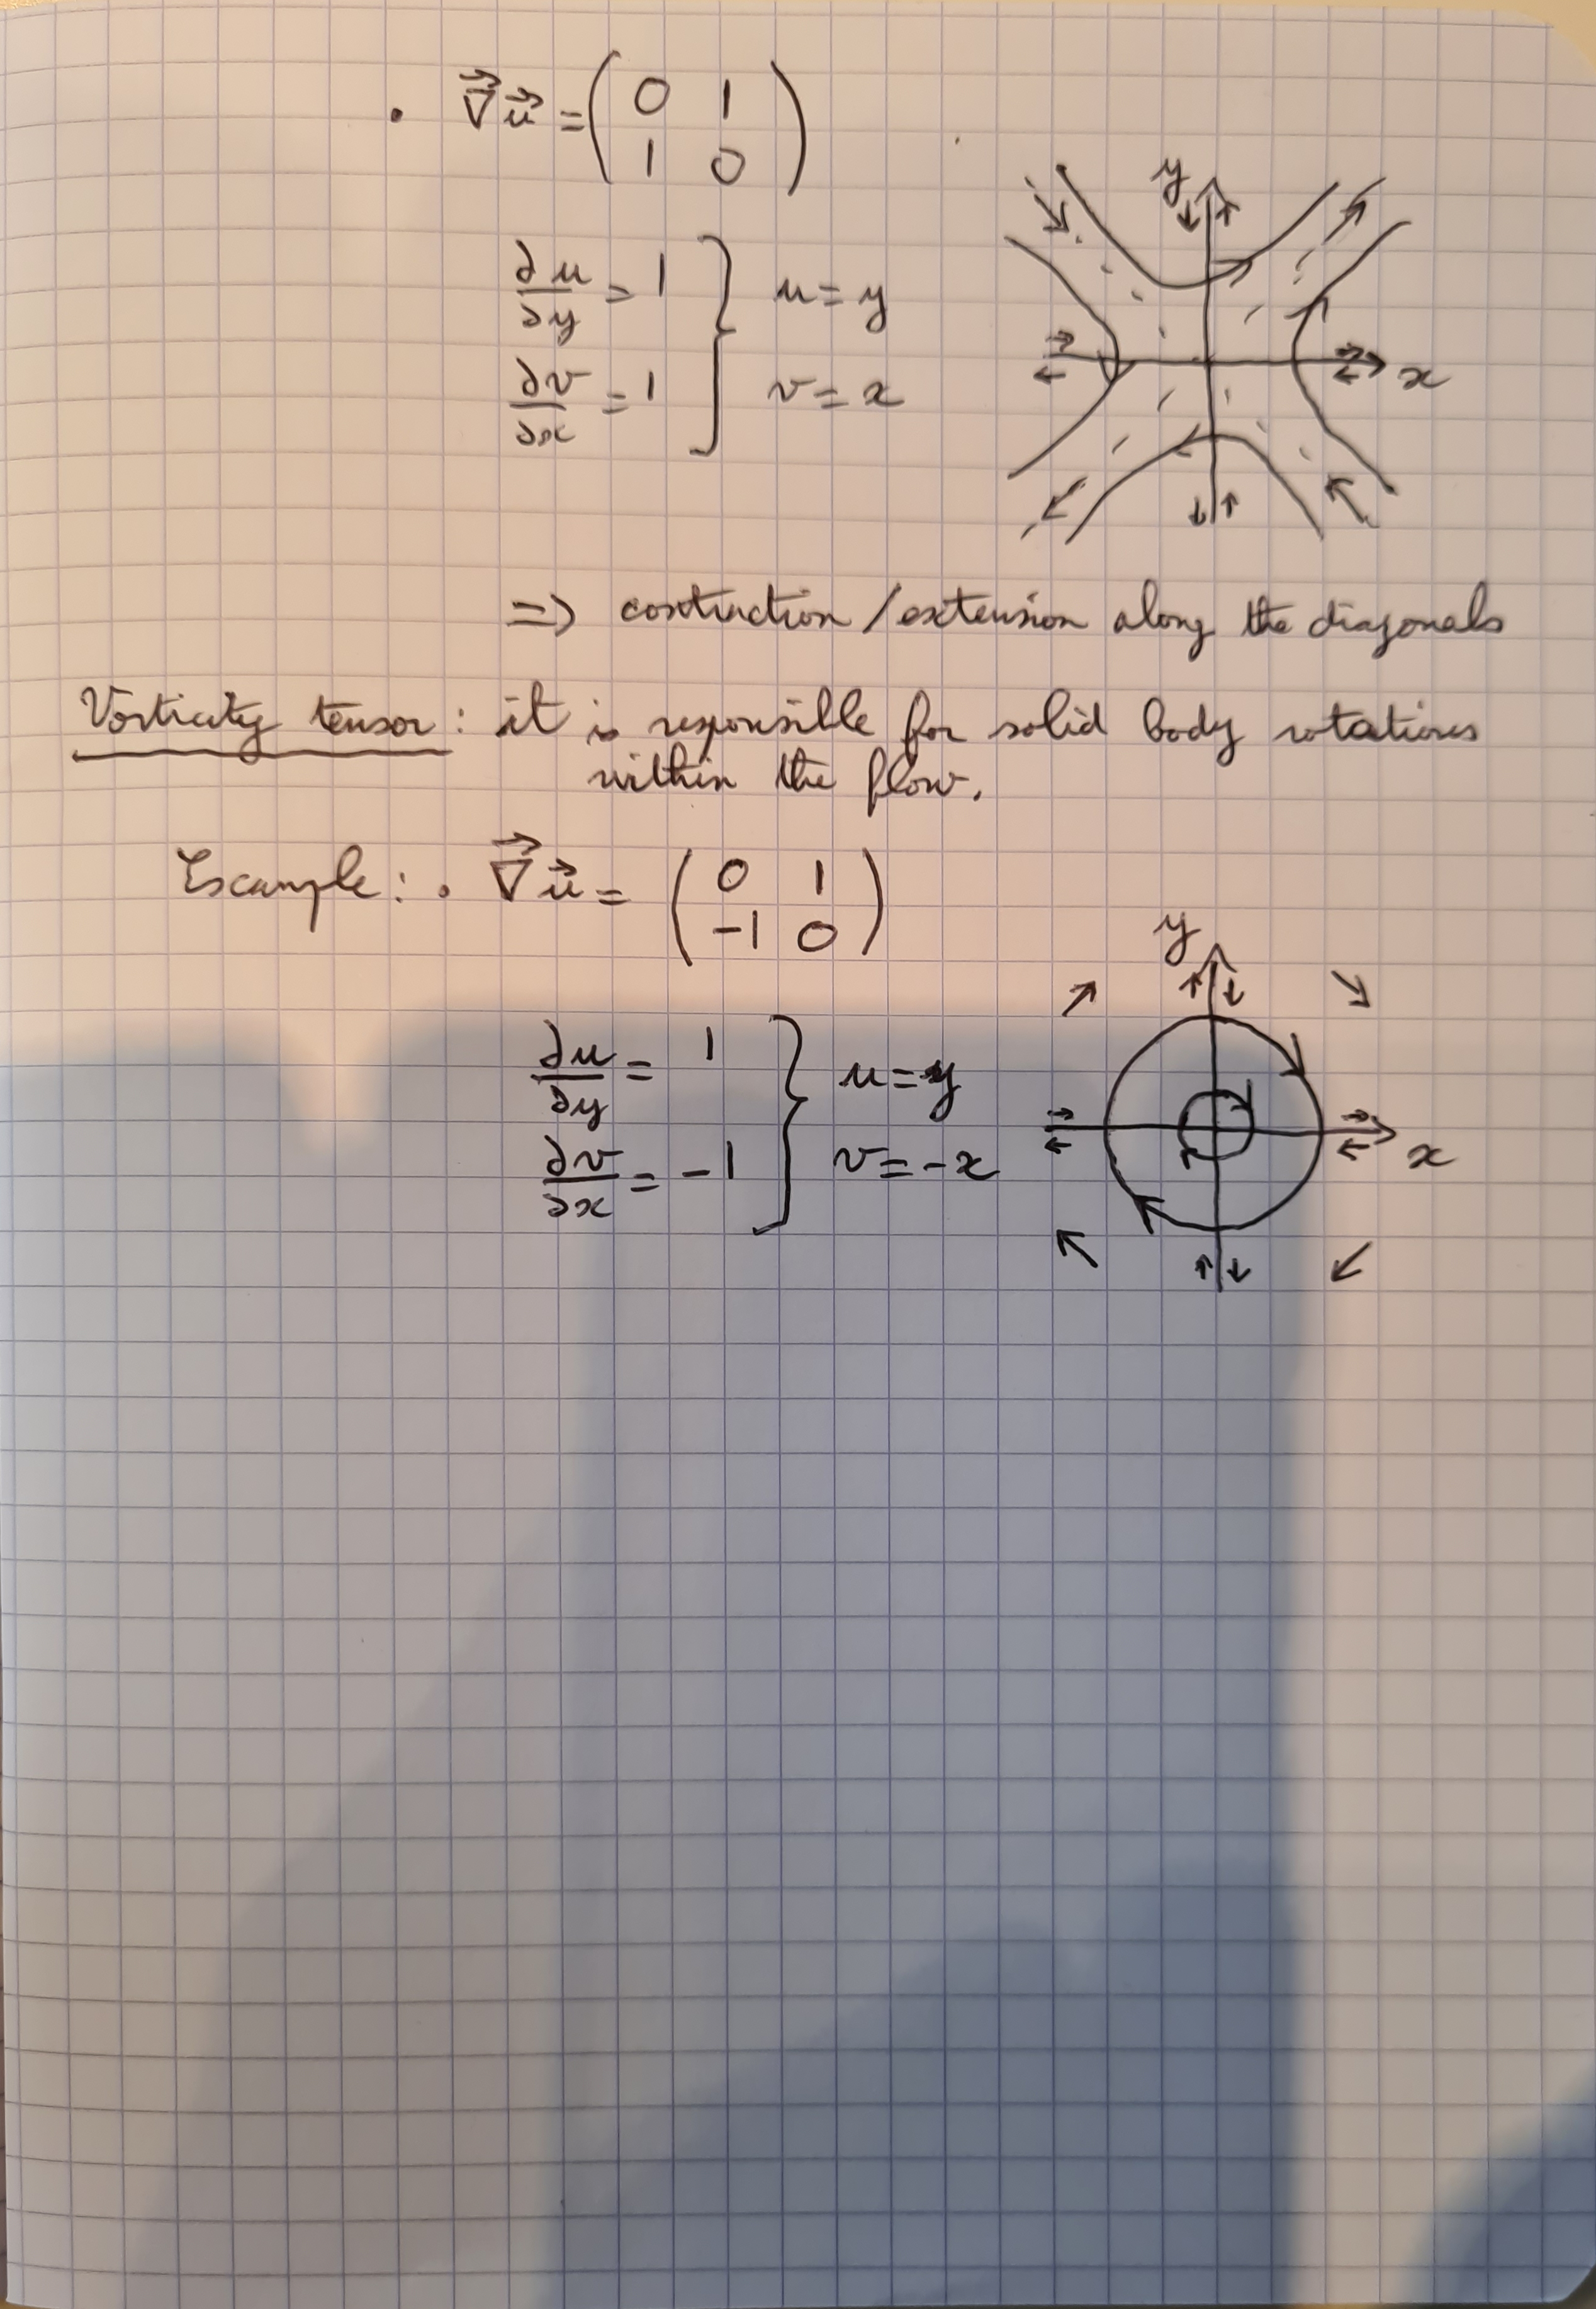 . ∇⃗u⃗ = ( 0 1
1 0 )
y
∂u/∂y = 1 } u = y
∂v/∂x = 1 } v = x
x
=> contraction / extension along the diagonals
Vorticity tensor : it is responsible for solid body rotations
within the flow.
Example : . ∇⃗u⃗ = ( 0 1
-1 0 )
y
∂u/∂y = 1 } u = y
∂v/∂x = -1 } v = -x
x